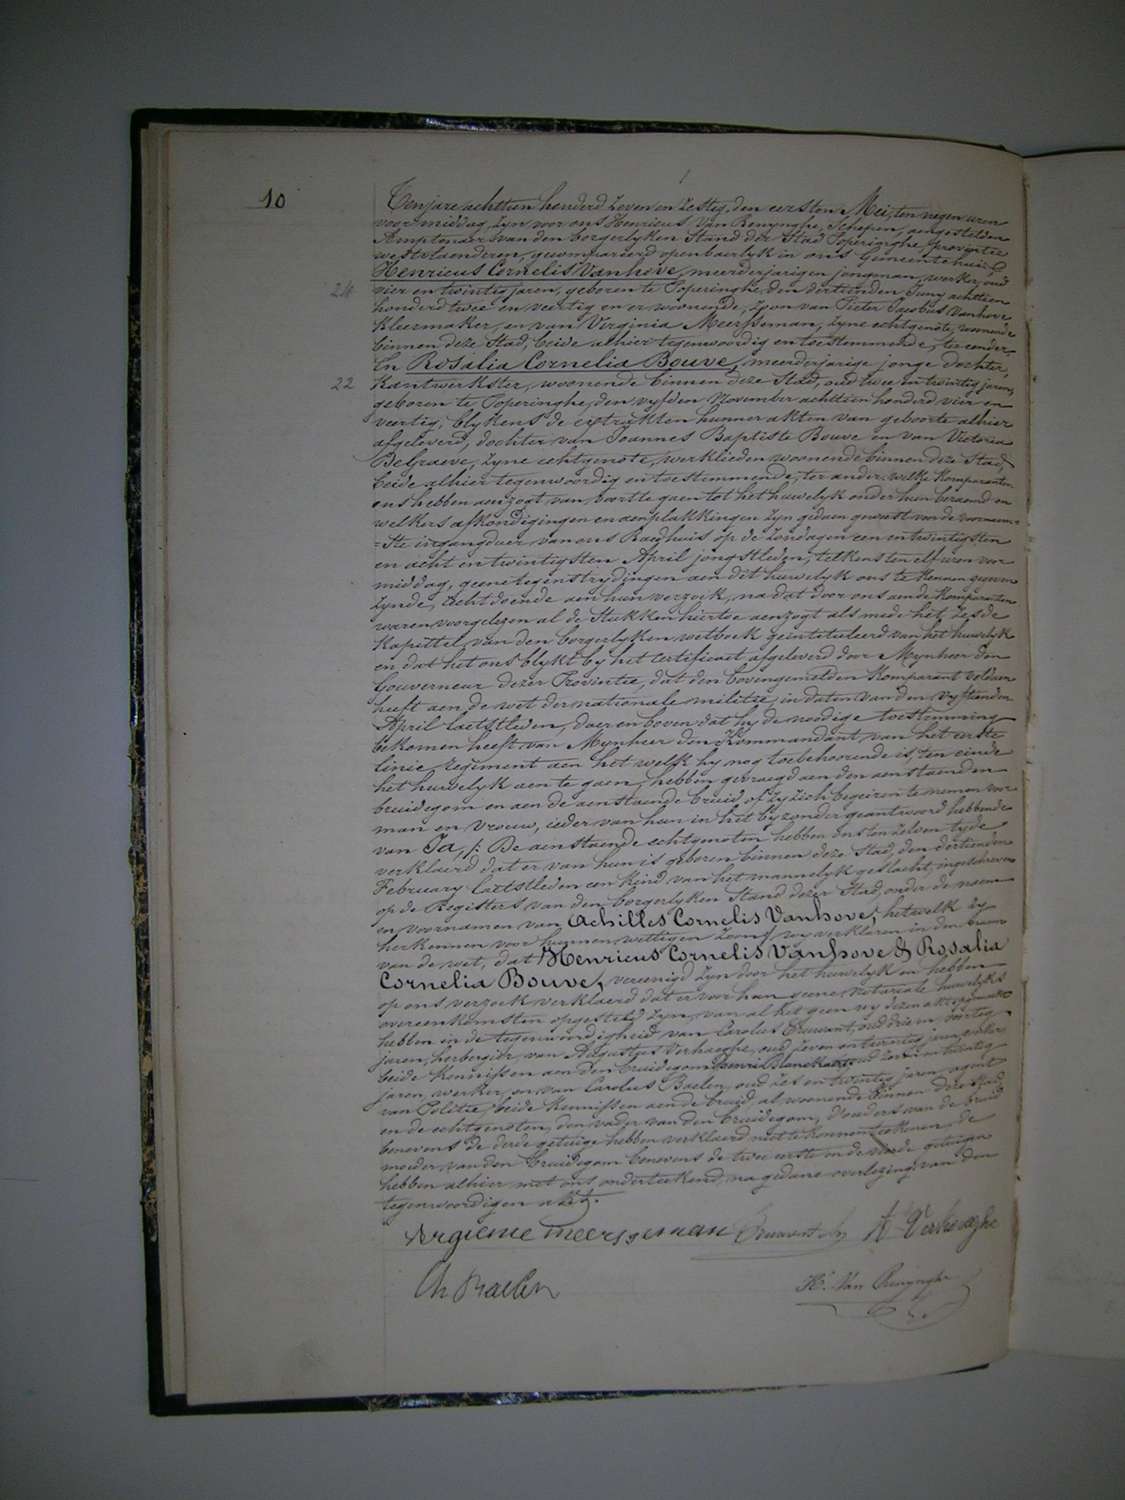 10
Ten jare achttien honderd zeven en zestig, den eersten Mei, ten negen uren
voormiddag, zyn voor ons Henricus Van Renynghe, Schepen, aengestelden
Amptenaer van den borgerlyken Stand der Stad Poperinghe, provintie
westvlaenderen, gecompareerd openbaerlyk in ons Gemeentehuis,
Henricus Cornelis Vanhove, meerderjarigen jongman, werker, oud
24 vier en twintig jaren, geboren te Poperinghe, den dertienden Juny achttien
honderd twee en veertig en er woonende, zoon van Pieter Jacobus Vanhove
kleermaker, en van Virginia Meersseman, zyne echtgenote, woonende
binnen deze Stad, beide alhier tegenwoordig en toestemmende, ter eender,
En Rosalia Cornelia Bouve, meerderjarige jonge dochter,
22 kantwerkster, woonende binnen deze Stad, oud twee en twintig jaren,
geboren te Poperinghe, den vyfden November achttien honderd vier en
veertig, blykens de extrakten hunner akten van geboorte alhier
afgeleverd, dochter van Joannes Baptiste Bouve en van Victoria
Belgraeve, zyne echtgenote, werklieden woonende binnen deze Stad,
beide alhier tegenwoordig en toestemmende, ter ander, welke Komparanten
ons hebben aenzogt van voort te gaen tot het huwelyk onder hun beraemd en
welkers afkondigingen en aenplakkingen zyn gedaen geweest voor de voornaem=
=ste ingangdeur van ons Raedhuis op de zondagen een en twintigsten
en acht en twintigsten April jongstleden, telkens ten elf uren voor
middag, geene tegenstrydingen aen dit huwelyk ons te kennen gegeven
zynde, echt doende aen hun verzoek, na dat door ons aen de Komparanten
waren voorgelezen al de Stukken hiertoe aenzogt als mede het zesde
Kapittel van den borgerlyken wetboek geintituleerd van het huwelyk
en dat het ons blykt by het certificaet afgeleverd door Mynheer den
Gouverneur dezer Provintie, dat den bovengemelden Komparant voldaen
heeft aen de wet der nationale militie, in daten van den vyftienden
April laetstleden, daer en boven dat hy de noodige toestemming
bekomen heeft van Mynheer den Kommandant van het eerste
linie regiment aen het welk hy nog toebehoorende is, ten einde
het huwelyk aen te gaen, hebben gevraegd aen den aenstaenden
bruidegom en aen de aenstaende bruid of zy zich begeiren te nemen voor
man en vrouw, ieder van hun in het byzonder geantwoord hebbende
van Ja, /: De aenstaende echtgenoten hebben ons ten zelven tyde
verklaerd dat er van hun is geboren binnen deze Stad, den dertienden
February laetstleden een kind van het mannelyk geslacht, ingeschreven
op de Registers van den borgerlyken Stand dezer Stad, onder de naem
en voornamen van Achilles Cornelis Vanhove, hetwelk zy
herkennen voor hunnen wettigen zoon, wy verklaren in den naem
van de wet, dat Henricus Cornelis Vanhove & Rosalia
Cornelia Bouve, vereenigd zyn door het huwelyk en hebben
op ons verzoek verklaerd dat er voor hun geene notariale huwelyks
overeenkomsten opgesteld zyn, van al het geen wy dezen akt opgemaekt
hebben in de tegenwoordigheid van Carolus Cruwant, oud drie en veertig
jaren, herbergier, van Augustus Verhaeghe, oud zeven en twintig jaren, werker
beide kennissen aen den bruidegom, Henri Blanckaert, oud en twintig
jaren, werker, en van Carolus Baelen, oud zes en twintig jaren, agent
van Politie, beide kennissen aen de bruid, al woonende binnen deze Stad,
en de echtgenoten, den vader van den bruidegom, d'ouders van de bruid
benevens de derde getuige hebben verklaerd niet te konnen teekenen, de
moeder van den bruidegom benevens de twee eerste en de vierde getuigen
hebben alhier met ons onderteekend, na gedane voorlezing van den
tegenwoordigen akt.
virginie meersseman Cruwant A Verhaeghe
Ch Baelen H. Van Renynghe